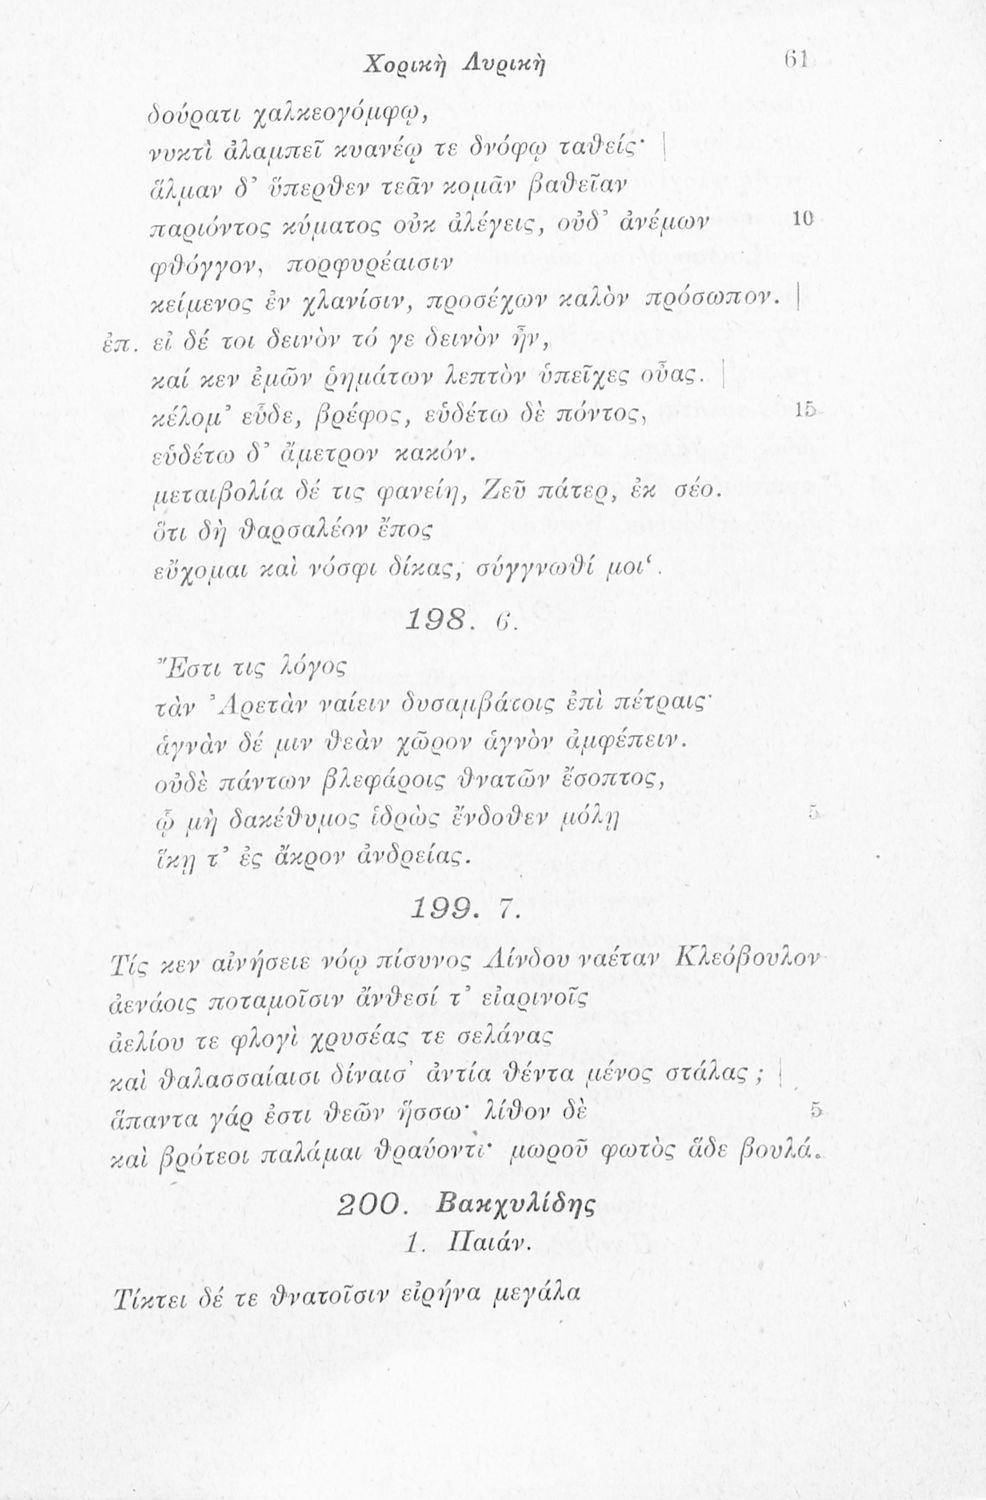 Χορικὴ Λυρικὴ 61
δούρατι χαλκεογόμφῳ,
νυκτὶ ἀλαμπεῖ κυανέῳ τε δνόφῳ ταθείς· |
ἅλμαν δ’ ὕπερθεν τεᾶν κομᾶν βαθεῖαν
παριόντος κύματος οὐκ ἀλέγεις, οὐδ’ ἀνέμων 10
φθόγγον, πορφυρέαισιν
κείμενος ἐν χλανίσιν, προσέχων καλὸν πρόσωπον. |
ἐπ. εἰ δέ τοι δεινὸν τό γε δεινὸν ἦν,
καί κεν ἐμῶν ῥημάτων λεπτὸν ὑπεῖχες οὖας. |
κέλομ’ εὗδε, βρέφος, εὑδέτω δὲ πόντος, 15
εὑδέτω δ’ ἄμετρον κακόν.
μεταιβολία δέ τις φανείη, Ζεῦ πάτερ, ἐκ σέο.
ὅτι δὴ θαρσαλέον ἔπος
εὔχομαι καὶ νόσφι δίκας, σύγγνωθί μοι‘.
198. 6.
Ἔστι τις λόγος
τὰν Ἀρετὰν ναίειν δυσαμβάτοις ἐπὶ πέτραις·
ἁγνὰν δέ μιν θεὰν χῶρον ἁγνὸν ἀμφέπειν.
οὐδὲ πάντων βλεφάροις θνατῶν ἔσοπτος,
ᾧ μὴ δακέθυμος ἱδρὼς ἔνδοθεν μόλῃ 5
ἵκῃ τ’ ἐς ἄκρον ἀνδρείας.
199. 7.
Τίς κεν αἰνήσειε νόῳ πίσυνος Λίνδου ναέταν Κλεόβουλον
ἀενάοις ποταμοῖσιν ἄνθεσί τ’ εἰαρινοῖς
ἀελίου τε φλογὶ χρυσέας τε σελάνας
καὶ θαλασσαίαισι δίναισ’ ἀντία θέντα μένος στάλας; |
ἅπαντα γάρ ἐστι θεῶν ἥσσω· λίθον δὲ 5
καὶ βρότεοι παλάμαι θραύοντι· μωροῦ φωτὸς ἅδε βουλά.
200. Βακχυλίδης
1. Παιάν.
Τίκτει δέ τε θνατοῖσιν εἰρήνα μεγάλα